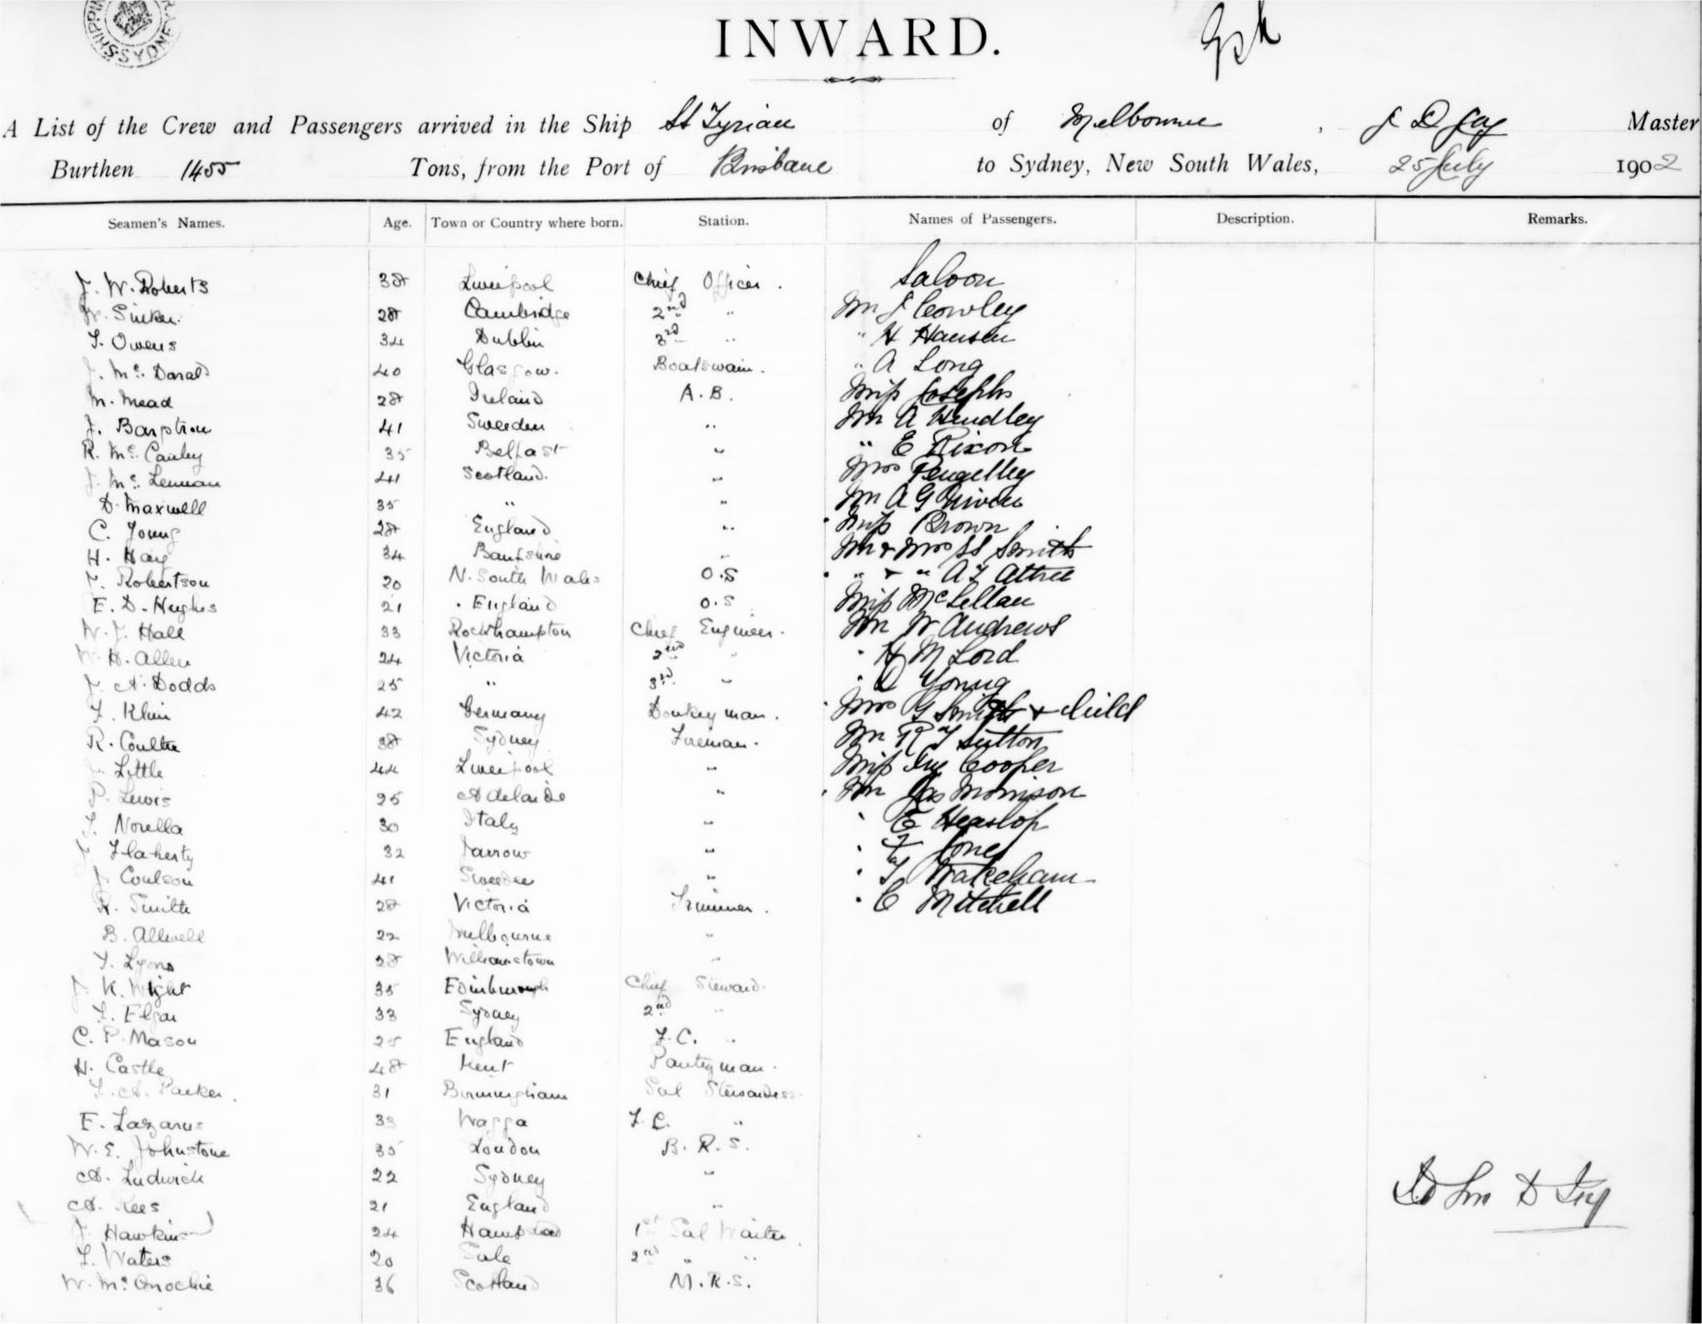 SHIPPING SYDNEY
INWARD.
A List of the Crew and Passengers arrived in the Ship St Tyrian of Melbourne , J D Fry Master
Burthen 1455 Tons, from the Port of Brisbane to Sydney, New South Wales, 25 July 1902
Seamen's Names. Age. Town or Country where born. Station. Names of Passengers. Description. Remarks.
Saloon
J. W. Roberts 38 Liverpool Chief Officer.
W. Sinker 28 Cambridge 2nd " Mr J Cowley
T. Owens 34 Dublin 3rd " " H Hansen
J. Mc. Donald 40 Glasgow. Boatswain. " A Long
M. Mead 28 Ireland A.B. Miss Josephs
J. 41 Sweden " Mr A Hindley
R. Mc. Cauley 35 Belfast " " E Rixon
J. Mc. Lennan 41 Scotland. " Mrs Pengelley
D. Maxwell 35 " " Mr A G Niven
C. Young 28 England " Miss Brown
H. Hay 34 Banffshire " Mr & Mrs Smith
J. Robertson 20 N. South Wales O.S " & " A Attree
E. D. Hughes 21 England O.S Miss McLellan
W. J. Hall 33 Rockhampton Chief Engineer. Mr W Andrews
W. H. Allen 24 Victoria 2nd " " H M Lord
J. A. Dodds 25 " 3rd " " D Young
F. Klein 42 Germany Donkeyman. Mrs G Smith & Child
R. Coulter 38 Sydney Fireman. Mr R Sutton
Little 44 Liverpool " Miss Ivy Cooper
P. Lewis 25 Adelaide " Mr Jas Morrison
T. Novella 30 Italy " " E Heaslop
J. Flaherty 32 Jarrow " " F Jones
J. Coulson 41 Sweden " " T Wakeham
R. Smith 28 Victoria Trimmer. " C Mitchell
B. Allwell 22 Melbourne "
T. Lyons 28 Williamstown "
J. K. Wight 35 Edinburough Chief Steward.
F. Elgar 33 Sydney 2nd "
C. P. Mason 25 England F.C. "
H. Castle 48 Kent Pantryman.
A. Parker. 31 Birmingham Sal Stewardess.
E. Lazarus 33 Wagga F.C. "
W. E. Johnstone 35 London B.R.S.
A. Ludwick 22 Sydney "
A. Rees 21 England "
John D Fry
J. Hawkins 24 Hampstead 1st Sal Waiter.
F. Waters 20 Sale 2nd " "
W. Mc. Onochie 36 Scotland M.R.S.